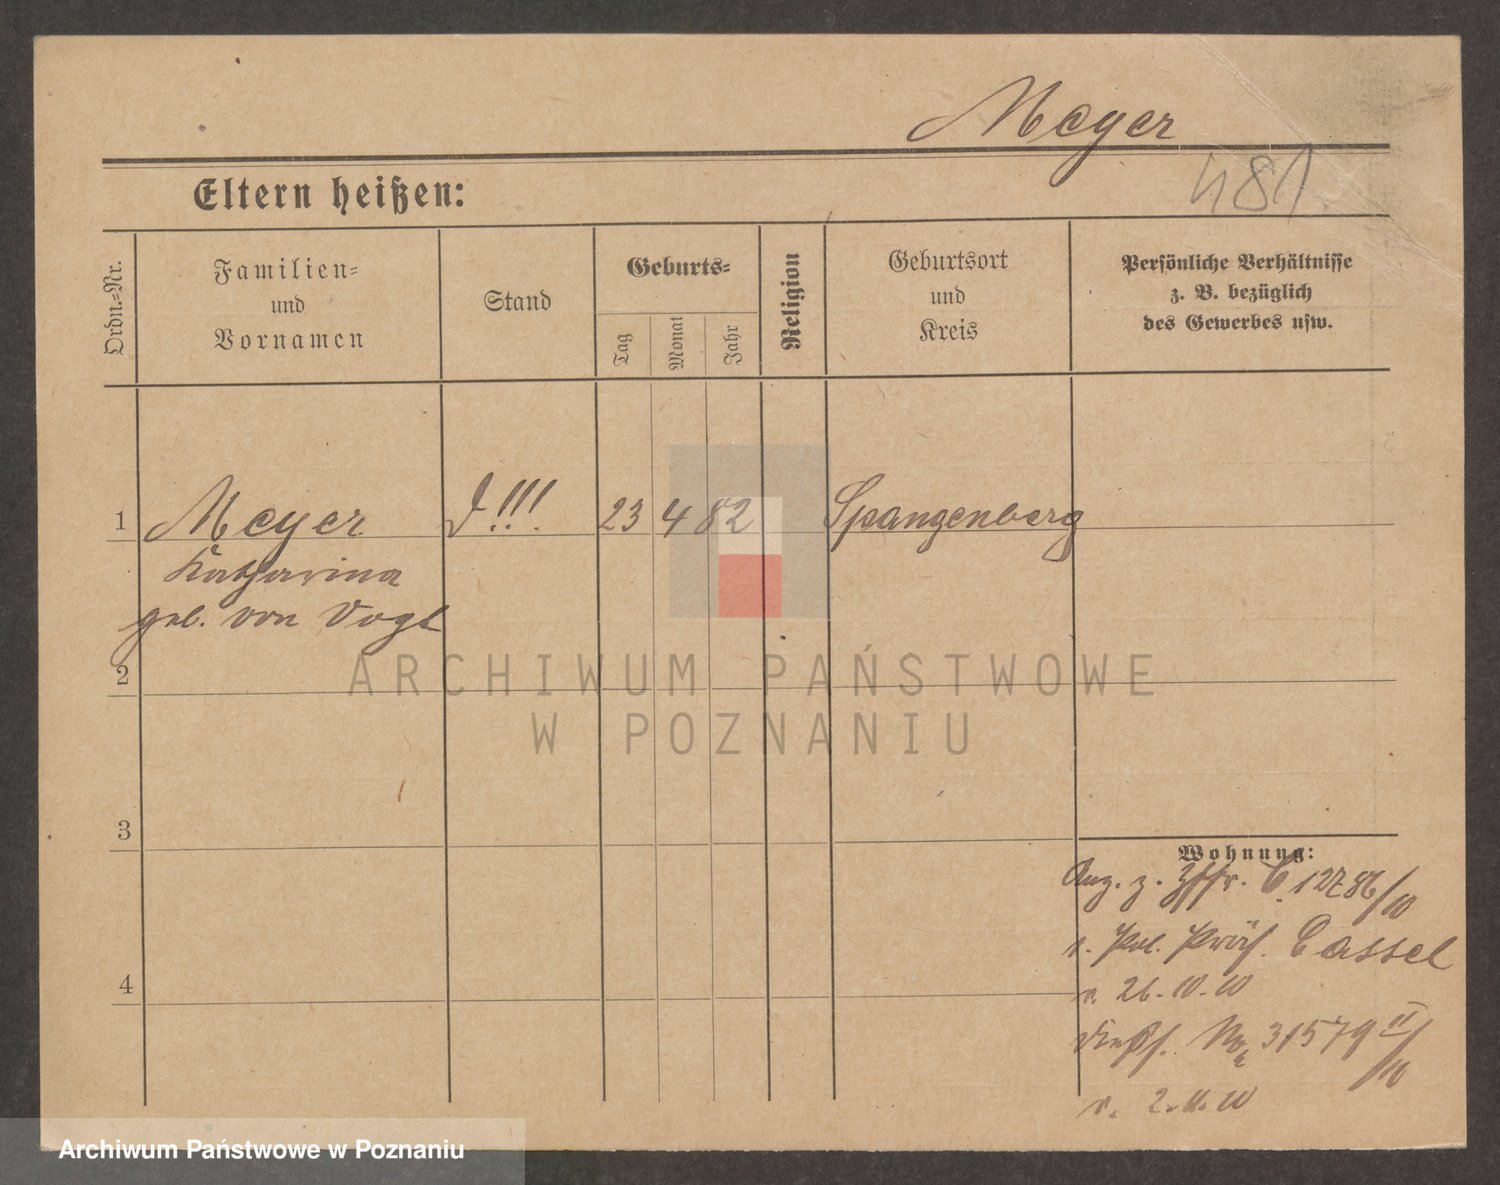 Meyer
481
Eltern heißen:
Ordn.-Nr.
Familien-
und
Vornamen
Stand
Geburts-
Tag
Monat
Jahr
Religion
Geburtsort
und
Kreis
Persönliche Verhältnisse
z. B. bezüglich
des Gewerbes usw.
1 Meyer !!! 23 4 82 Spangenberg
Katharina
geb. von Vogt
2
3
4
Wohnung:
Anz. z. C. 12786/10
Pol. Präs. Cassel
v. 26.10.10
31579 II/10
v. 2.11.10
ARCHIWUM PAŃSTWOWE
W POZNANIU
Archiwum Państwowe w Poznaniu